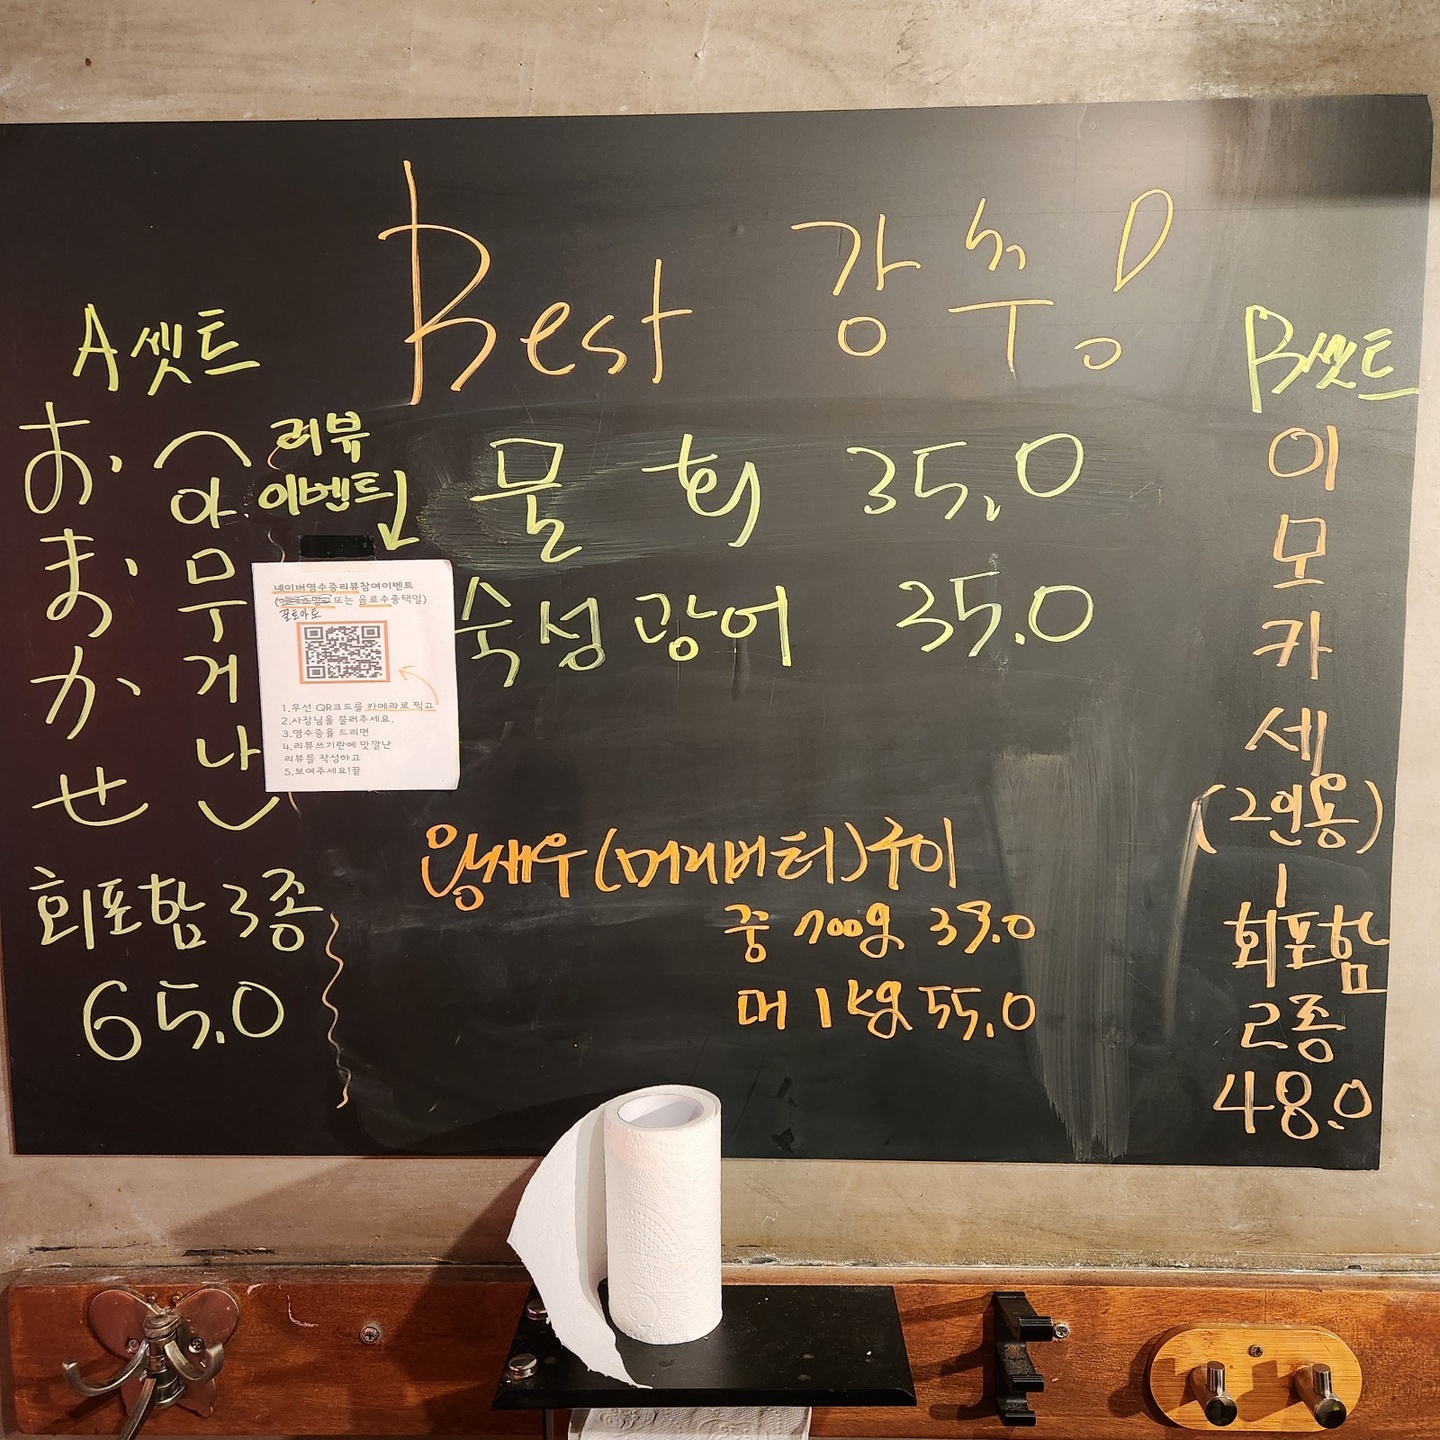 Best 강추!
A셋트
おまかせ
(아무거나)
회포함 3종
65.0
리뷰
이벤트↓
네이버영수증리뷰참여이벤트
또는 음료수중택일)
꿀토마토
1.우선 QR코드를 카메라로 찍고
2.사장님을 불러주세요.
3.영수증을 드리면
4.리뷰쓰기란에 맛깔난
리뷰를 작성하고
5.보여주세요!끝
물회 35.0
숙성광어 35.0
왕새우(머리버터)구이
중 700g 39.0
대 1kg 55.0
B셋트
이모카세
(2인용)
회포함
2종
48.0